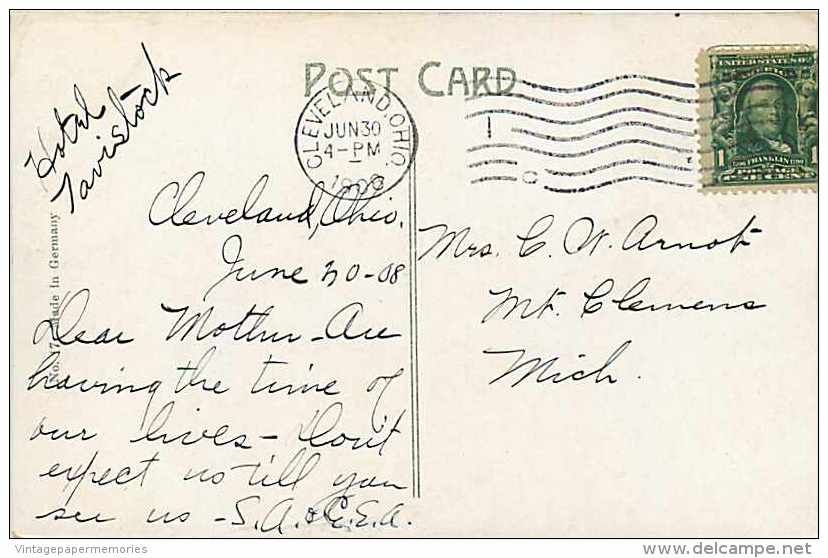 POST CARD
Hotel
Tavistock
CLEVELAND, OHIO.
JUN 30
4-PM
1908
1
C
UNITED STATES OF
AMERICA
FRANKLIN
1 1
Cleveland, Ohio.
June 30-08
Dear Mother - Are
having the time of
our lives - Don't
expect us till you
see us - S.A. & C.E.A.
Mrs. C. W. Arnot
Mt. Clemens
Mich.
Made in Germany
No.
Vintagepapermemories
delcampe.net